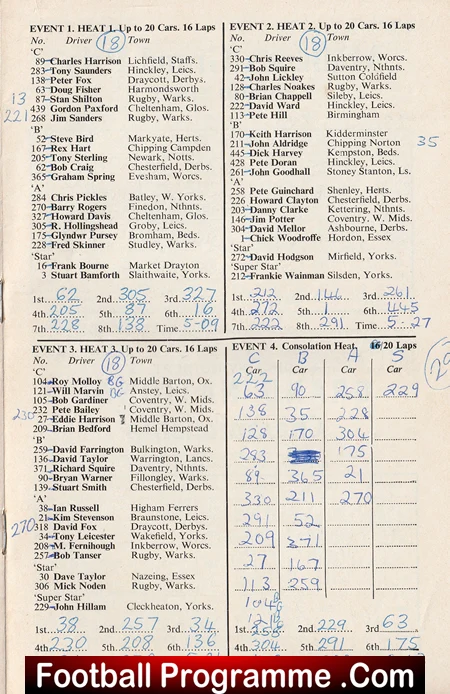 EVENT 1. HEAT 1. Up to 20 Cars. 16 Laps
No. Driver 18 Town
'C'
89 Charles Harrison Lichfield, Staffs.
283 Tony Saunders Hinckley, Leics.
138 Peter Fox Draycott, Derbys.
63 Doug Fisher Harmondsworth
13 87 Stan Shilton Rugby, Warks.
439 Gordon Paxford Cheltenham, Glos.
221 268 Jim Sanders Rugby, Warks.
'B'
52 Steve Bird Markyate, Herts.
167 Rex Hart Chipping Camden
205 Tony Sterling Newark, Notts.
62 Bob Craig Chesterfield, Derbs.
365 Graham Spring Evesham, Worcs.
'A'
284 Chris Pickles Batley, W. Yorks.
270 Barry Rogers Finedon, Nthnts.
327 Howard Davis Cheltenham, Glos.
305 R. Hollingshead Groby, Leics.
175 Glyndwr Pursey Bromham, Beds.
228 Fred Skinner Studley, Warks.
'Star'
16 Frank Bourne Market Drayton
3 Stuart Bamforth Slaithwaite, Yorks.
1st. 62 2nd. 305 3rd. 327
4th. 205 5th. 87 6th. 16
7th. 228 8th. 138 Time 5-09
EVENT 2. HEAT 2. Up to 20 Cars. 16 Laps
No. Driver 18 Town
'C'
330 Chris Reeves Inkberrow, Worcs.
291 Bob Squire Daventry, Nthnts.
42 John Lickley Sutton Coldfield
128 Charles Noakes Rugby, Warks.
80 Brian Chappell Sileby, Leics.
222 David Ward Hinckley, Leics.
113 Pete Hill Birmingham
'B'
170 Keith Harrison Kidderminster
211 John Aldridge Chipping Norton 35
445 Dick Harvey Kempston, Beds.
428 Pete Doran Hinckley, Leics.
261 John Goodhall Stoney Stanton, Ls.
'A'
258 Pete Guinchard Shenley, Herts.
226 Howard Clayton Chesterfield, Derbs.
203 Danny Clarke Kettering, Nthnts.
146 Jim Potter Coventry. W. Mids.
304 David Mellor Ashbourne, Derbs.
1 Chick Woodroffe Hordon, Essex
'Star'
272 David Hodgson Mirfield, Yorks.
'Super Star'
212 Frankie Wainman Silsden, Yorks.
1st. 212 2nd. 146 3rd. 261
4th. 272 5th. 1 6th. 445
7th. 222 8th. 291 Time 5-27
EVENT 3. HEAT 3. Up to 20 Cars. 16 Laps
No. Driver 18 Town
'C'
104 Roy Molloy BG Middle Barton, Ox.
121 Will Marvin BG Anstey, Leics.
105 Bob Gardiner Coventry, W. Mids.
232 Pete Bailey Coventry, W. Mids.
230 27 Eddie Harrison Middle Barton, Ox.
209 Brian Bedford Hemel Hempstead
'B'
259 David Farrington Bulkington, Warks.
136 David Taylor Warrington, Lancs.
371 Richard Squire Daventry, Nthnts.
90 Bryan Warner Fillongley, Warks.
139 Stuart Smith Chesterfield, Derbs.
'A'
38 Ian Russell Higham Ferrers
21 Kim Stevenson Braunstone, Leics.
270 318 David Fox Draycott, Derbys.
34 Tony Leicester Wakefield, Yorks.
208 M. Fernihough Inkberrow, Worcs.
257 Bob Tanser Rugby, Warks.
'Star'
30 Dave Taylor Nazeing, Essex
306 Mick Noden Rugby, Warks.
'Super Star'
229 John Hillam Cleckheaton, Yorks.
1st. 38 2nd. 257 3rd. 34
4th. 230 5th. 208 6th. 136
EVENT 4. Consolation Heat. 16/20 Laps
C B A S
Car Car Car Car
222
63 90 258 229
138 35 228
128 170 304
283 175
89 365 21
330 211 270
291 52
209 371
27 167
113 259
104 BG
2nd. 229 3rd. 63
4th. 304 5th. 291 6th. 175
Football Programme .Com